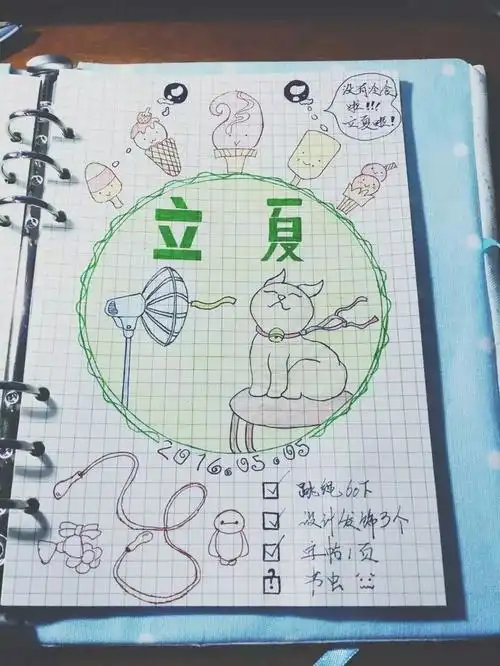 没有冷合
啦!!!
立夏啦!
立夏
2016.05.05
跳绳60下
设计发饰3个
字帖1页
书虫